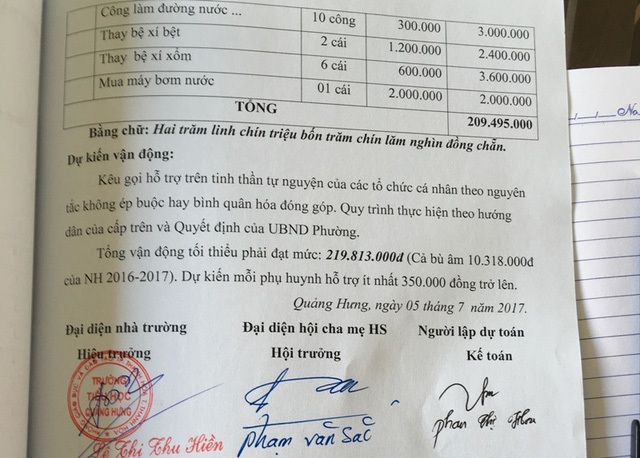 Công làm đường nước ... 10 công 300.000 3.000.000
Thay bệ xí bệt 2 cái 1.200.000 2.400.000
Thay bệ xí xổm 6 cái 600.000 3.600.000
Mua máy bơm nước 01 cái 2.000.000 2.000.000
TỔNG 209.495.000
Bằng chữ: Hai trăm linh chín triệu bốn trăm chín lăm nghìn đồng chẵn.
Dự kiến vận động:
Kêu gọi hỗ trợ trên tinh thần tự nguyện của các tổ chức cá nhân theo nguyên
tắc không ép buộc hay bình quân hóa đóng góp. Quy trình thực hiện theo hướng
dẫn của cấp trên và Quyết định của UBND Phường.
Tổng vận động tối thiểu phải đạt mức: 219.813.000đ (Cả bù âm 10.318.000đ
của NH 2016-2017). Dự kiến mỗi phụ huynh hỗ trợ ít nhất 350.000 đồng trở lên.
Quảng Hưng, ngày 05 tháng 7 năm 2017.
Đại diện nhà trường Đại diện hội cha mẹ HS Người lập dự toán
Hiệu trưởng Hội trưởng Kế toán
TRƯỜNG
TIỂU HỌC
QUẢNG HƯNG
Lê Thị Thu Hiền phạm văn Sắc phan Thị
No.